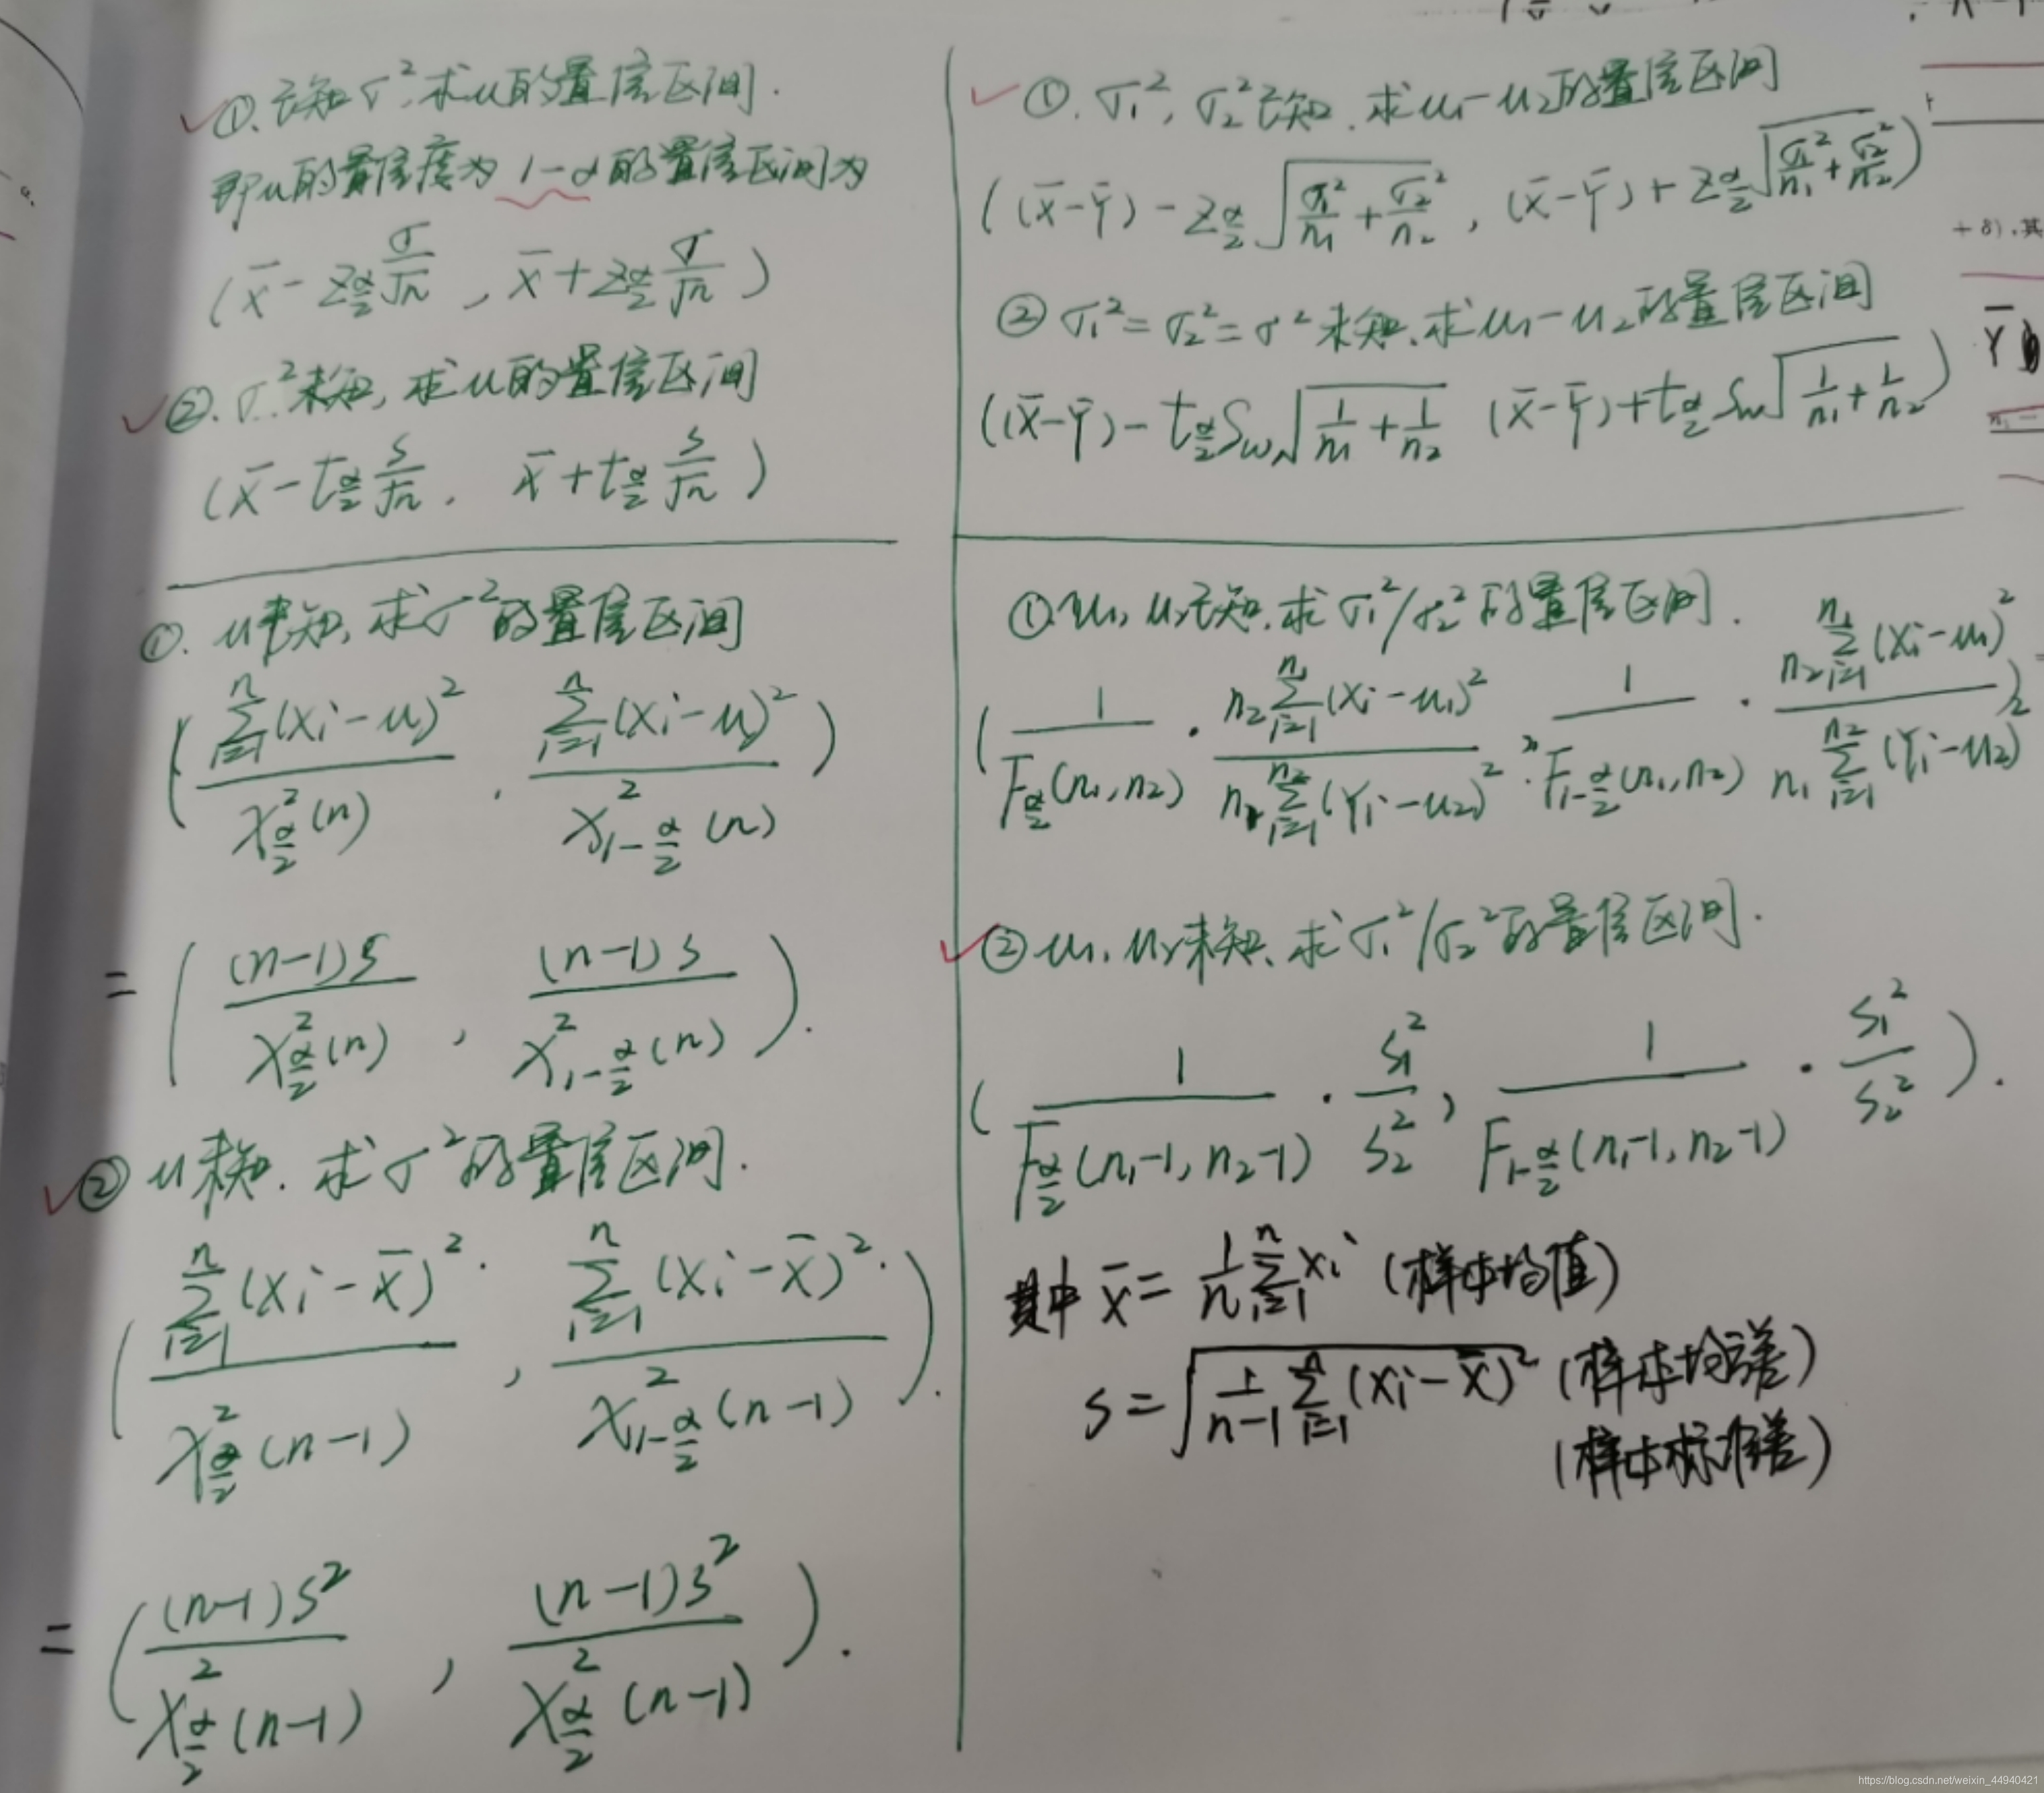 ①. 已知σ², 求μ的置信区间.
即μ的置信度为 1-α 的置信区间为
(x̄ - z_{α/2} σ/√n , x̄ + z_{α/2} σ/√n )
②. σ²未知, 求μ的置信区间
(x̄ - t_{α/2} s/√n , x̄ + t_{α/2} s/√n )
①. μ已知, 求σ²的置信区间
( ∑_{i=1}^{n}(xi-μ)² / χ²_{α/2}(n) , ∑_{i=1}^{n}(xi-μ)² / χ²_{1-α/2}(n) )
= ( (n-1)s / χ²_{α/2}(n) , (n-1)s / χ²_{1-α/2}(n) ).
② μ未知. 求σ²的置信区间.
( ∑_{i=1}^{n}(xi-x̄)² / χ²_{α/2}(n-1) , ∑_{i=1}^{n}(xi-x̄)² / χ²_{1-α/2}(n-1) ).
= ( (n-1)s² / χ²_{α/2}(n-1) , (n-1)s² / χ²_{α/2}(n-1) ).
①. σ₁², σ₂²已知. 求μ₁-μ₂的置信区间
( (x̄-Ȳ) - z_{α/2} √(σ₁²/n₁ + σ₂²/n₂) , (x̄-Ȳ) + z_{α/2} √(σ₁²/n₁ + σ₂²/n₂) )
② σ₁²=σ₂²=σ²未知. 求μ₁-μ₂的置信区间
( (x̄-Ȳ) - t_{α/2} Sw √(1/n₁ + 1/n₂) (x̄-Ȳ) + t_{α/2} Sw √(1/n₁ + 1/n₂) )
① μ₁, μ₂已知. 求σ₁²/σ₂²的置信区间.
( 1/F_{α/2}(n₁,n₂) · n₂∑_{i=1}^{n₁}(xi-μ₁)² / n₁∑_{i=1}^{n₂}(Yi-μ₂)² , 1/F_{1-α/2}(n₁,n₂) · n₂∑_{i=1}^{n₁}(xi-μ₁)² / n₁∑_{i=1}^{n₂}(Yi-μ₂)² )
② μ₁, μ₂未知. 求σ₁²/σ₂²的置信区间.
( 1/F_{α/2}(n₁-1, n₂-1) · s₁²/s₂² , 1/F_{1-α/2}(n₁-1, n₂-1) · s₁²/s₂² ).
其中 x̄ = 1/n ∑_{i=1}^{n} xi (样本均值)
s = √(1/(n-1) ∑_{i=1}^{n}(xi-x̄)²) (样本均误差)
(样本标准差)
+8), 其
Ȳ
https://blog.csdn.net/weixin_44940421